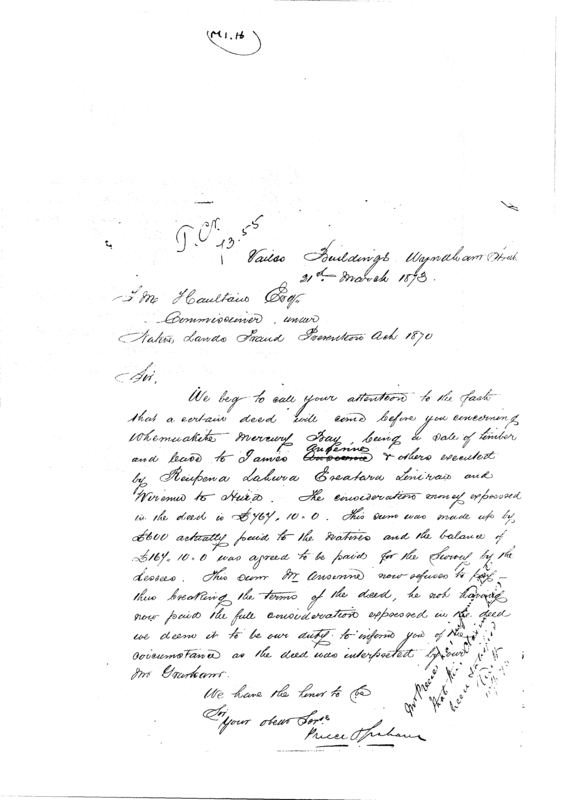 (M1.16)
T. Cr. 73.55
Vailes Buildings Wyndham Street
21st March 1873.
T M Haultain Esq.
Commissioner under
Native Lands Fraud Prevention Act 1870
Sir,
We beg to call your attention to the fact
that a certain deed will come before you concerning
Whenuakite Mercury Bay, being a sale of timber
and lease to James Ansenne & others executed
by
and
Wiremu te
The consideration money expressed
in the deed is £767.10.0. This sum was made up by
£600 actually paid to the natives and the balance of
£167.10.0 was agreed to be paid for the Survey by the
Lessees. This sum Mr Ansenne now refuses to pay –
thus breaking the terms of the deed, he not having
now paid the full consideration expressed in the deed
we deem it to be our duty to inform you of the
circumstance as the deed was interpreted by our
Mr Graham.
We have the honor to be
Sir
Your obedt Servts
Preece & Graham
Mr Preece has
that this
been satisfied